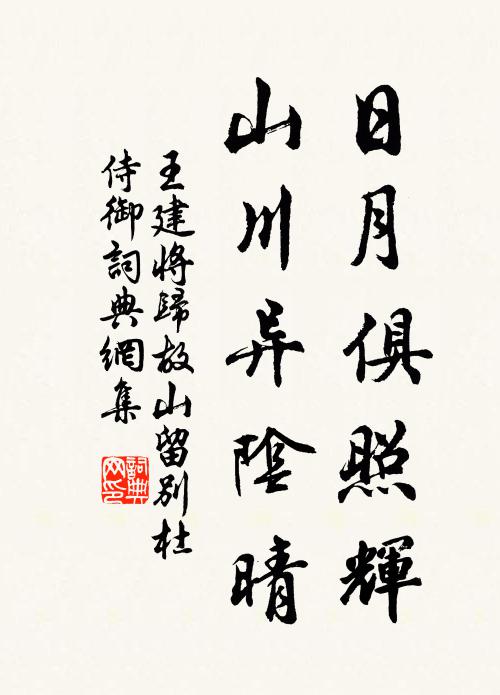 日月俱照輝
山川异陰晴
王建將歸故山留別杜
侍御詞典網集
詞典
网印